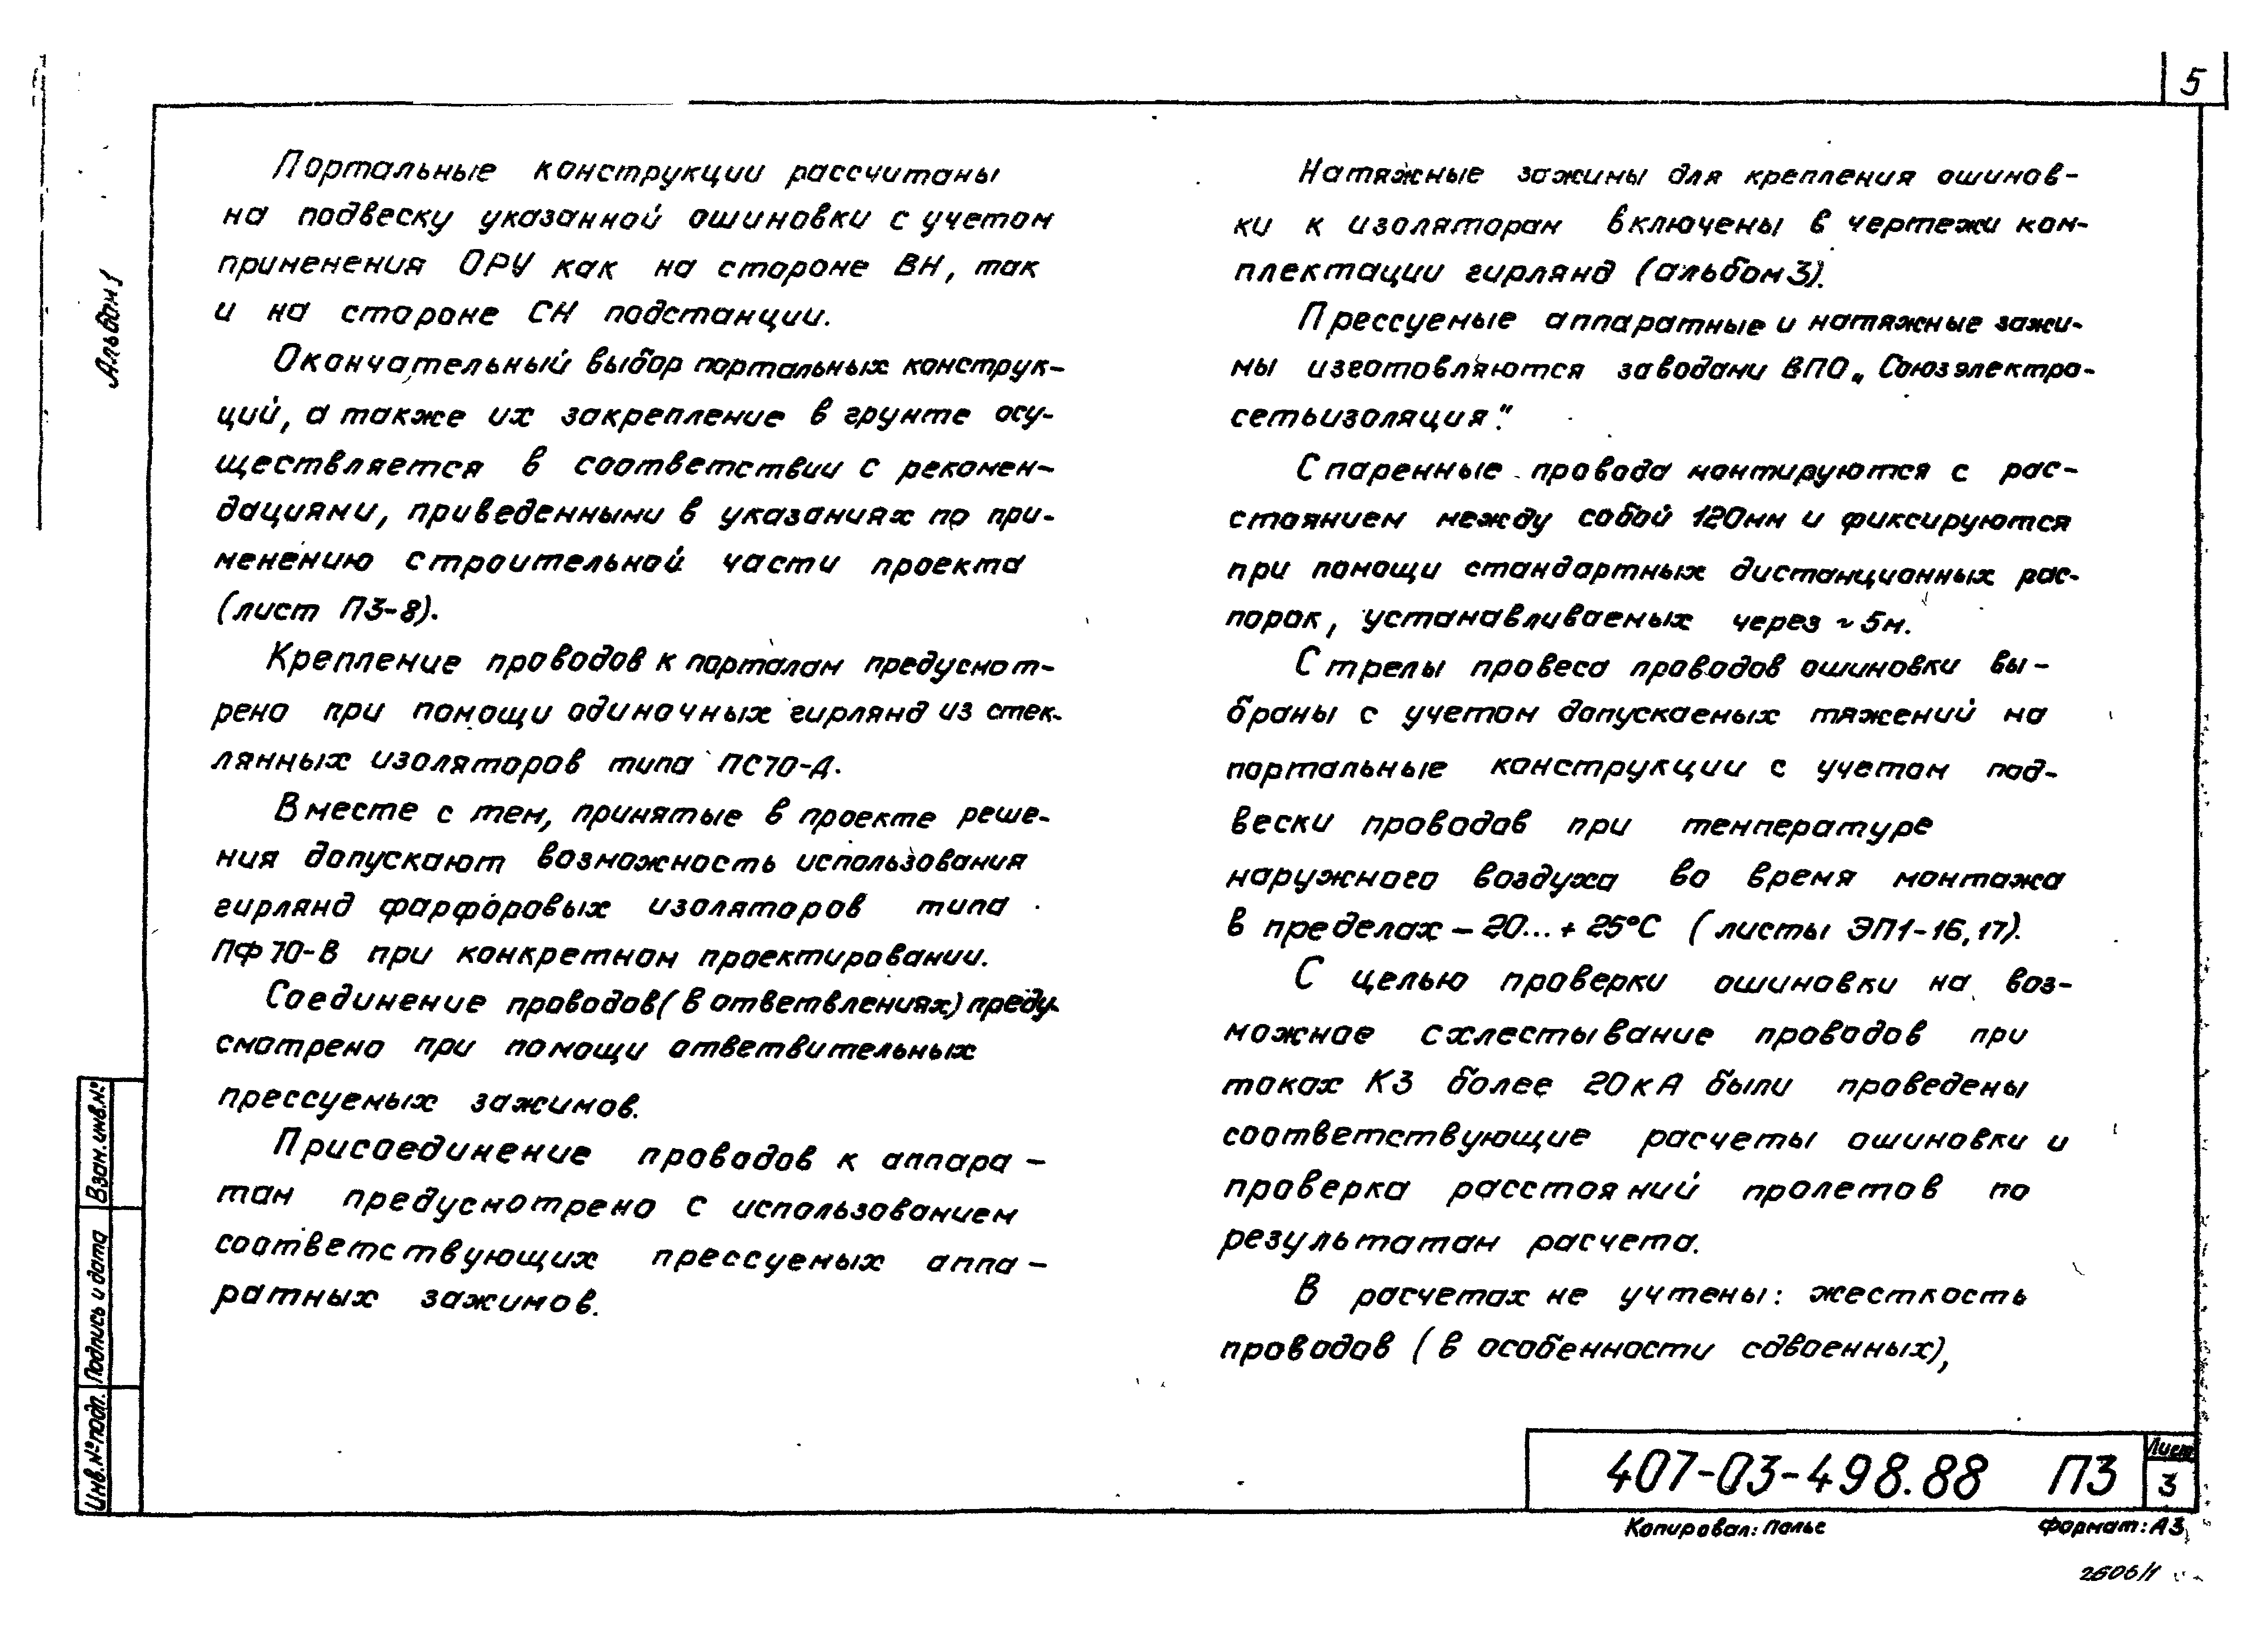 5
Альбом 1
Портальные конструкции рассчитаны
на подвеску указанной ошиновки с учетом
применения ОРУ как на стороне ВН, так
и на стороне СН подстанции.
Окончательный выбор портальных конструк-
ций, а также их закрепление в грунте осу-
ществляется в соответствии с рекомен-
дациями, приведенными в указаниях по при-
менению строительной части проекта
(лист ПЗ-8).
Крепление проводов к порталам предусмот-
рено при помощи одиночных гирлянд из стек-
лянных изоляторов типа ПС70-Д.
Вместе с тем, принятые в проекте реше-
ния допускают возможность использования
гирлянд фарфоровых изоляторов типа
ПФ70-В при конкретном проектировании.
Соединение проводов (в ответвлениях) преду-
смотрено при помощи ответвительных
прессуемых зажимов.
Присоединение проводов к аппара-
там предусмотрено с использованием
соответствующих прессуемых аппа-
ратных зажимов.
Натяжные зажимы для крепления ошинов-
ки к изоляторам включены в чертежи ком-
плектации гирлянд (альбом 3).
Прессуемые аппаратные и натяжные зажи-
мы изготовляются заводами ВПО „Союзэлектро-
сетьизоляция".
Спаренные провода монтируются с рас-
стоянием между собой 120мм и фиксируются
при помощи стандартных дистанционных рас-
порок, устанавливаемых через ~ 5м.
Стрелы провеса проводов ошиновки вы-
браны с учетом допускаемых тяжений на
портальные конструкции с учетом под-
вески проводов при температуре
наружного воздуха во время монтажа
в пределах -20...+25°С (листы ЭП1-16,17).
С целью проверки ошиновки на воз-
можное схлестывание проводов при
токах КЗ более 20кА были проведены
соответствующие расчеты ошиновки и
проверка расстояний пролетов по
результатам расчета.
В расчетах не учтены: жесткость
проводов (в особенности сдвоенных),
Инв.№подп. Подпись и дата Взам.инв.№
407-03-498.88 ПЗ
Лист
3
Копировал: Полье Формат: А3
2606/1